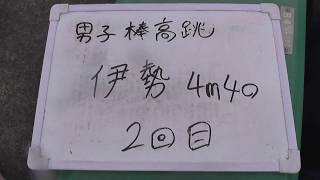 男子棒高跳
伊勢 4m40
2回目